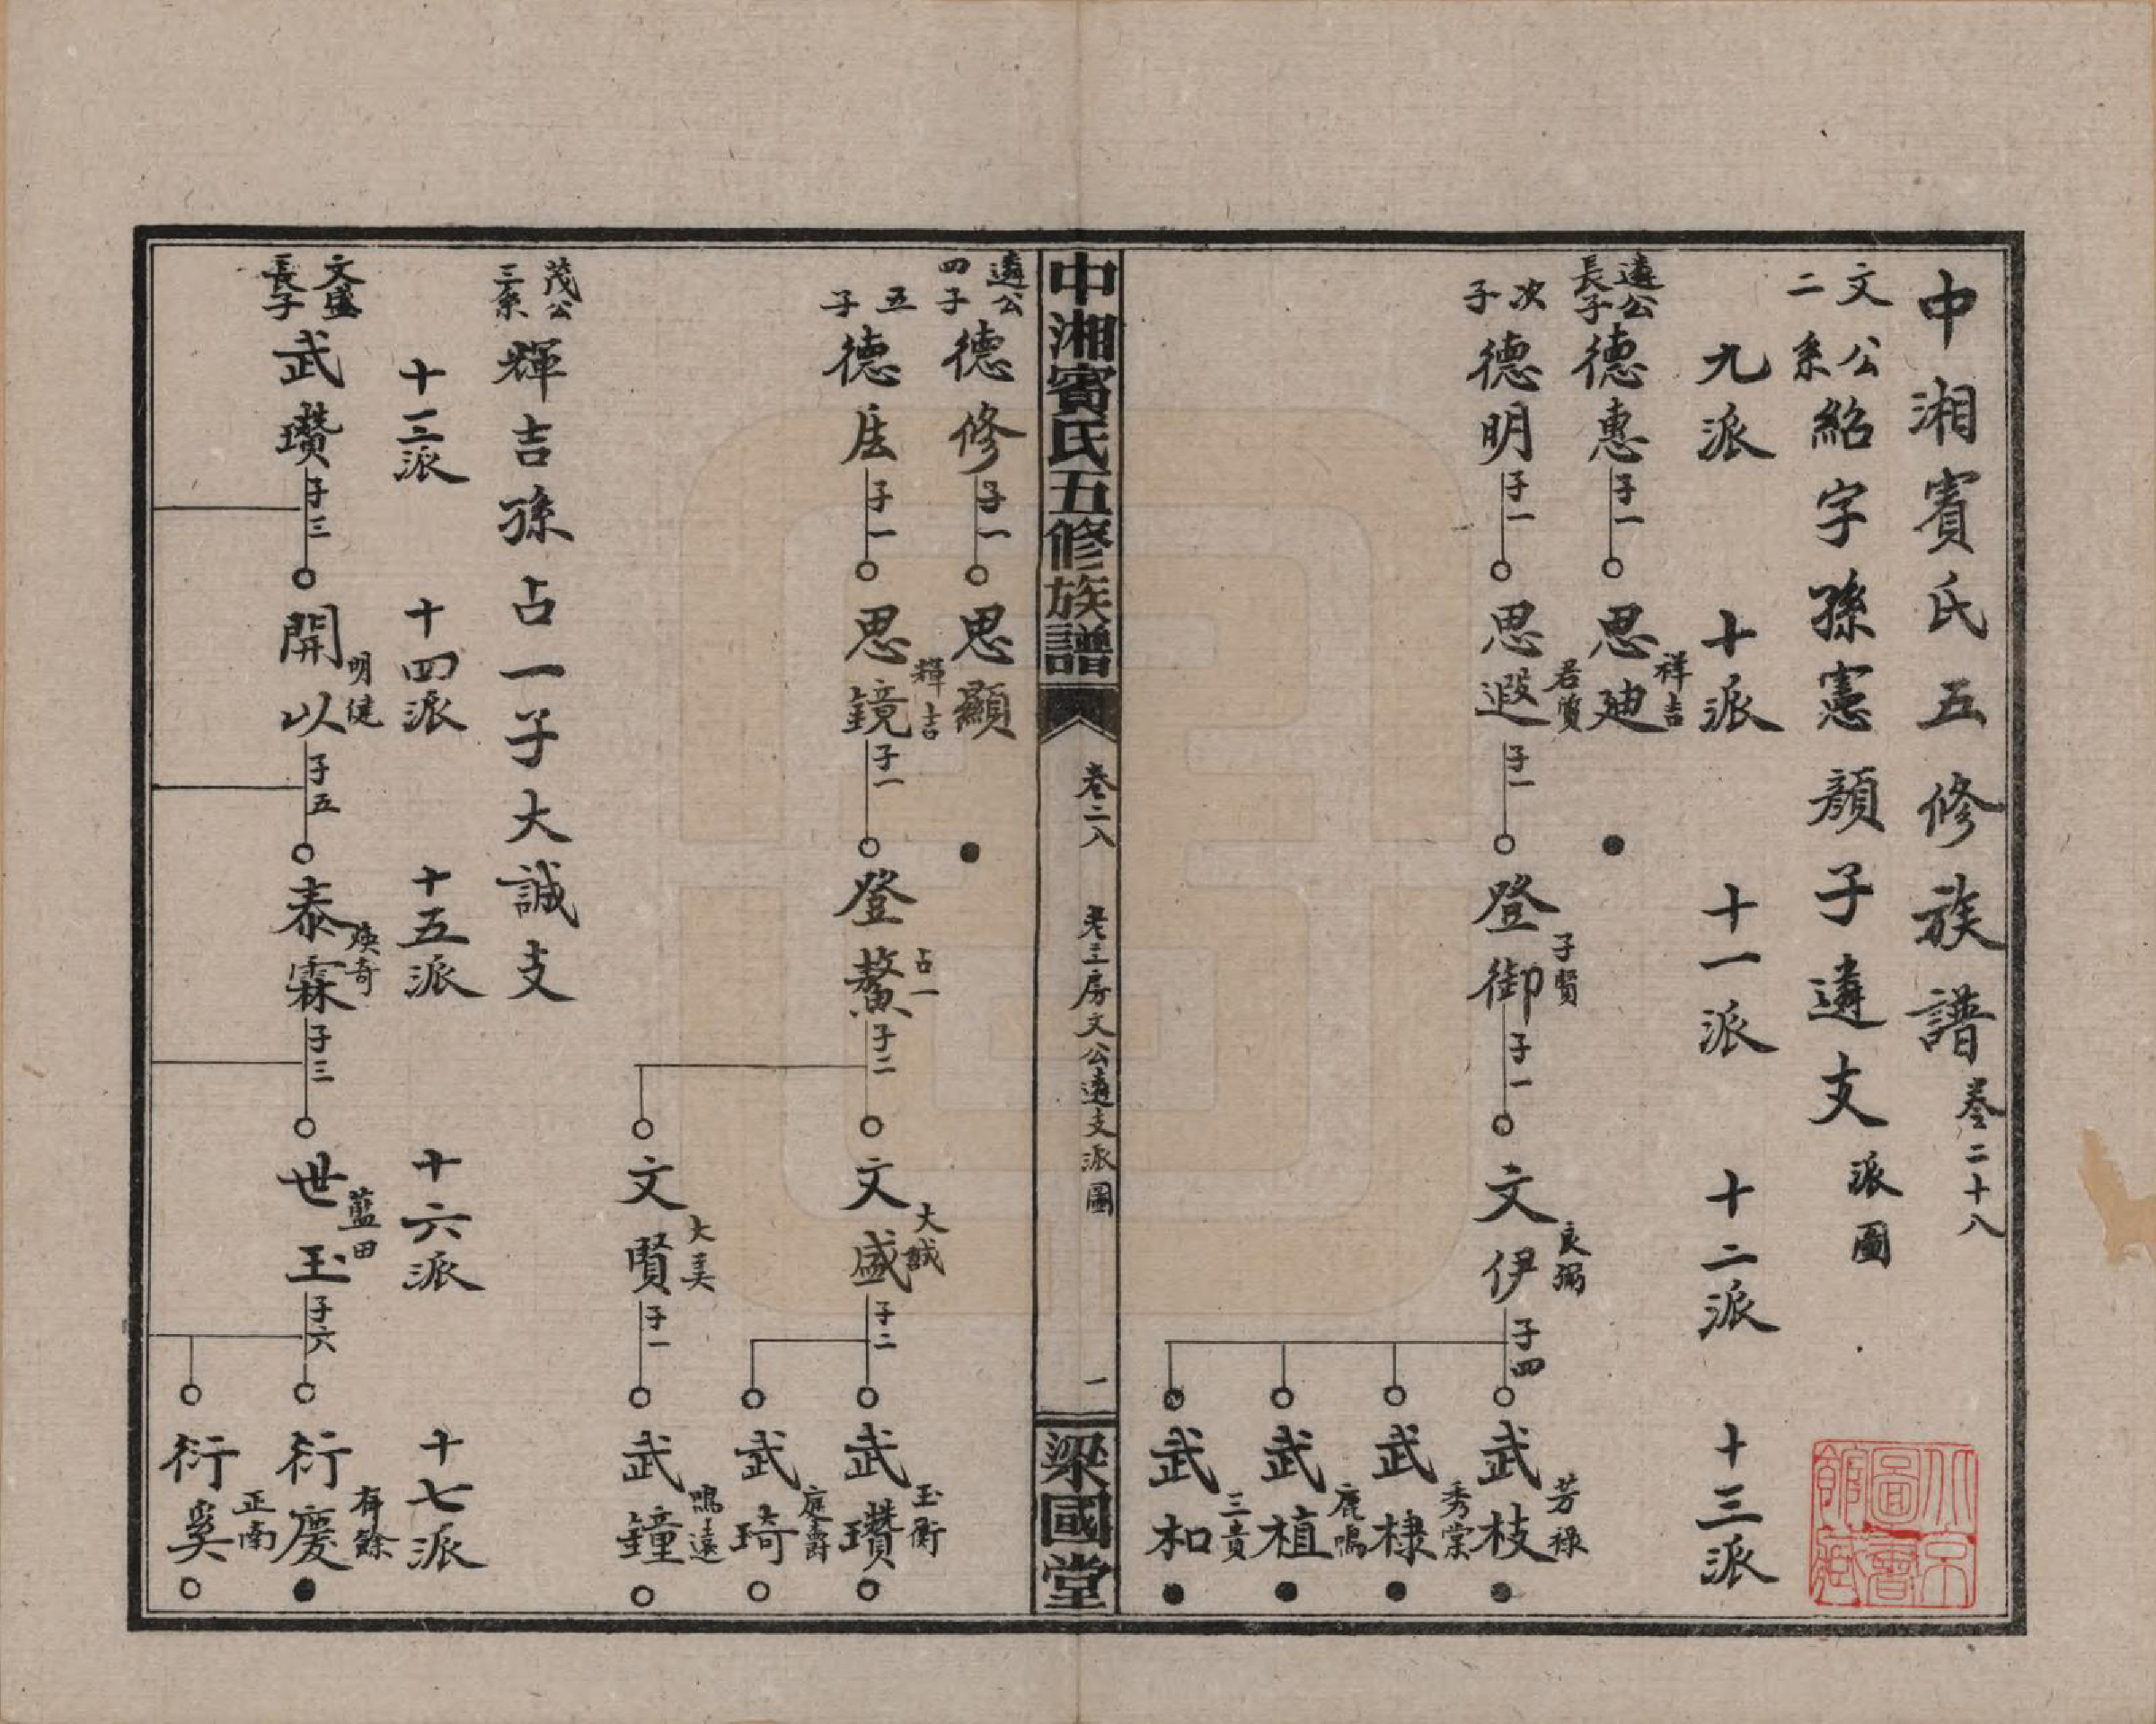 中湘賓氏五修族譜 卷二十八
文公二系紹字孫憲顔子遴支派圖
九派 十派 十一派 十二派 十三派
遴公長子 德惠 子一 思廸 祥吉
次子 德明 子一 思遐 君質 子一 登御 子賢 子一 文伊 良弼 子四 武枝 芳祿
武棣 秀棠
武植 鹿鳴
武和 三貴
中湘賓氏五修族譜 卷二八 老三房文公遴支派圖 一 梁國堂
遴公四子 德修 子一 思顯
五子 德 子一 思鏡 輝吉 子一 登鰲 占一 子二 文盛 大誠 子二 武瓚 玉衡
武琦 庭爵
文賢 大美 子一 武鐘 鳴遠
茂公三系 輝吉孫占一子大誠支
十三派 十四派 十五派 十六派 十七派
文盛長子 武瓚 子三 開以 明健 子五 泰霖 煥奇 子三 世玉 藍田 子六 衍慶 有餘
衍奚 正南
北京圖書館藏